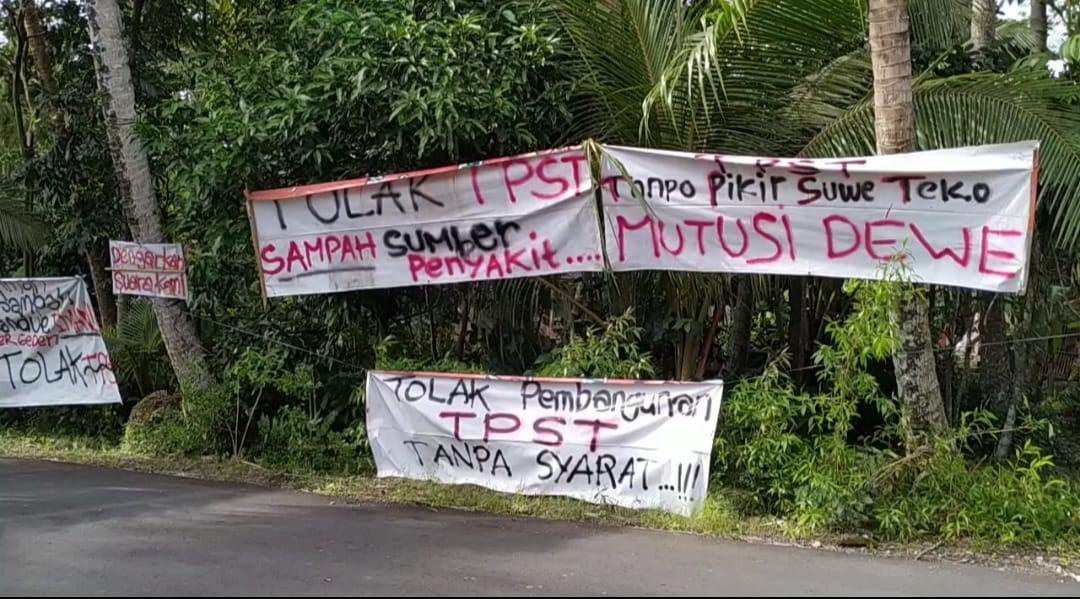 TOLAK TPST
SAMPAH SUMBER
Penyakit....
TPST
Tanpo Pikir Suwe Teko
MUTUSI DEWE
Dengarkan
Suara kami
TOLAK
TOLAK Pembangunan
TPST
TANPA SYARAT...!!!